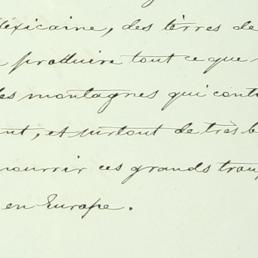 Mexicaine, des terres de
produire tout ce que
les montagnes qui cont
ant, et surtout de très b
nourrir ces grands trou
en Europe.